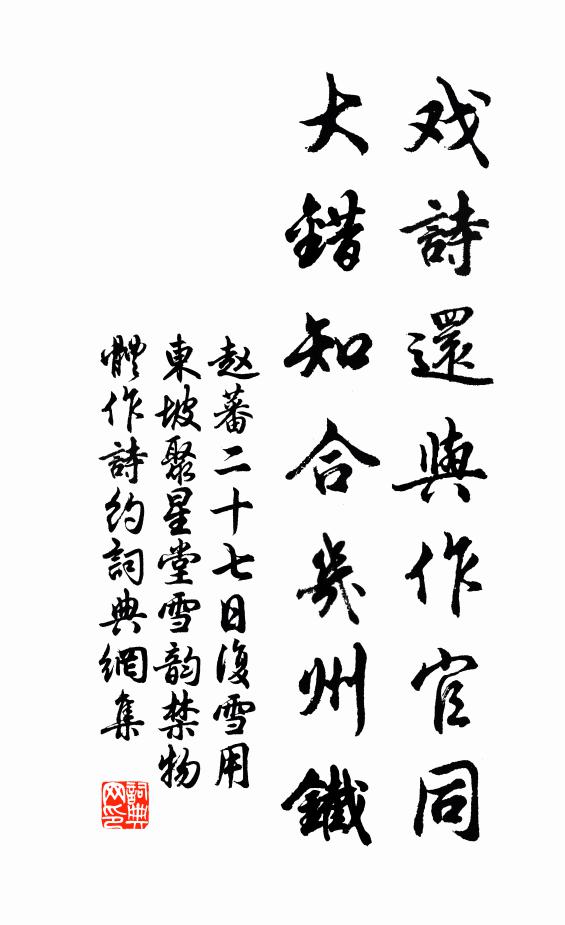 戏詩還與作官同
大錯知合幾州鐵
赵蕃二十七日復雪用
東坡聚星堂雪韵禁物
體作詩約詞典網集
詞典
网印